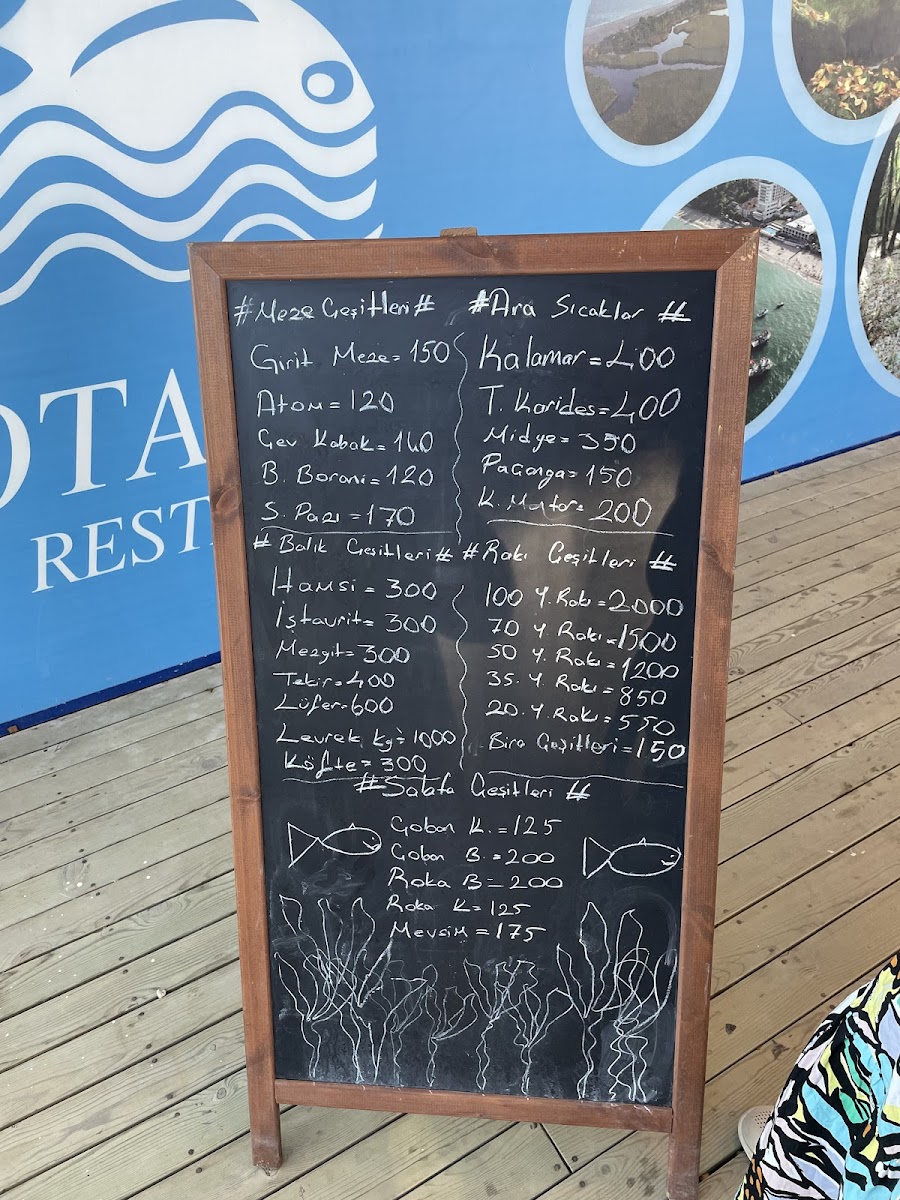 OTA
REST
#Meze Çeşitleri#
Girit Meze=150
Atom=120
Cev Kabak=140
B. Borani=120
S. Pazı=170
#Ara Sıcaklar #
Kalamar=400
T. Karides=400
Midye=350
Paçanga=150
200
# Balık Çeşitleri #
Hamsi=300
İstavrit=300
Mezgit=300
Tekir=400
Lüfer=600
Levrek kg=1000
Köfte=300
#Rakı Çeşitleri #
100 Y. Rakı=2000
70 Y Rakı=1500
50 Y. Rakı=1200
35. Y. Rakı=850
20. Y. Rakı=550
Bira Çeşitleri=150
#Salata Çeşitleri #
Çoban K.=125
Çoban B.=200
Roka B=200
Roka K=125
Mevsim=175